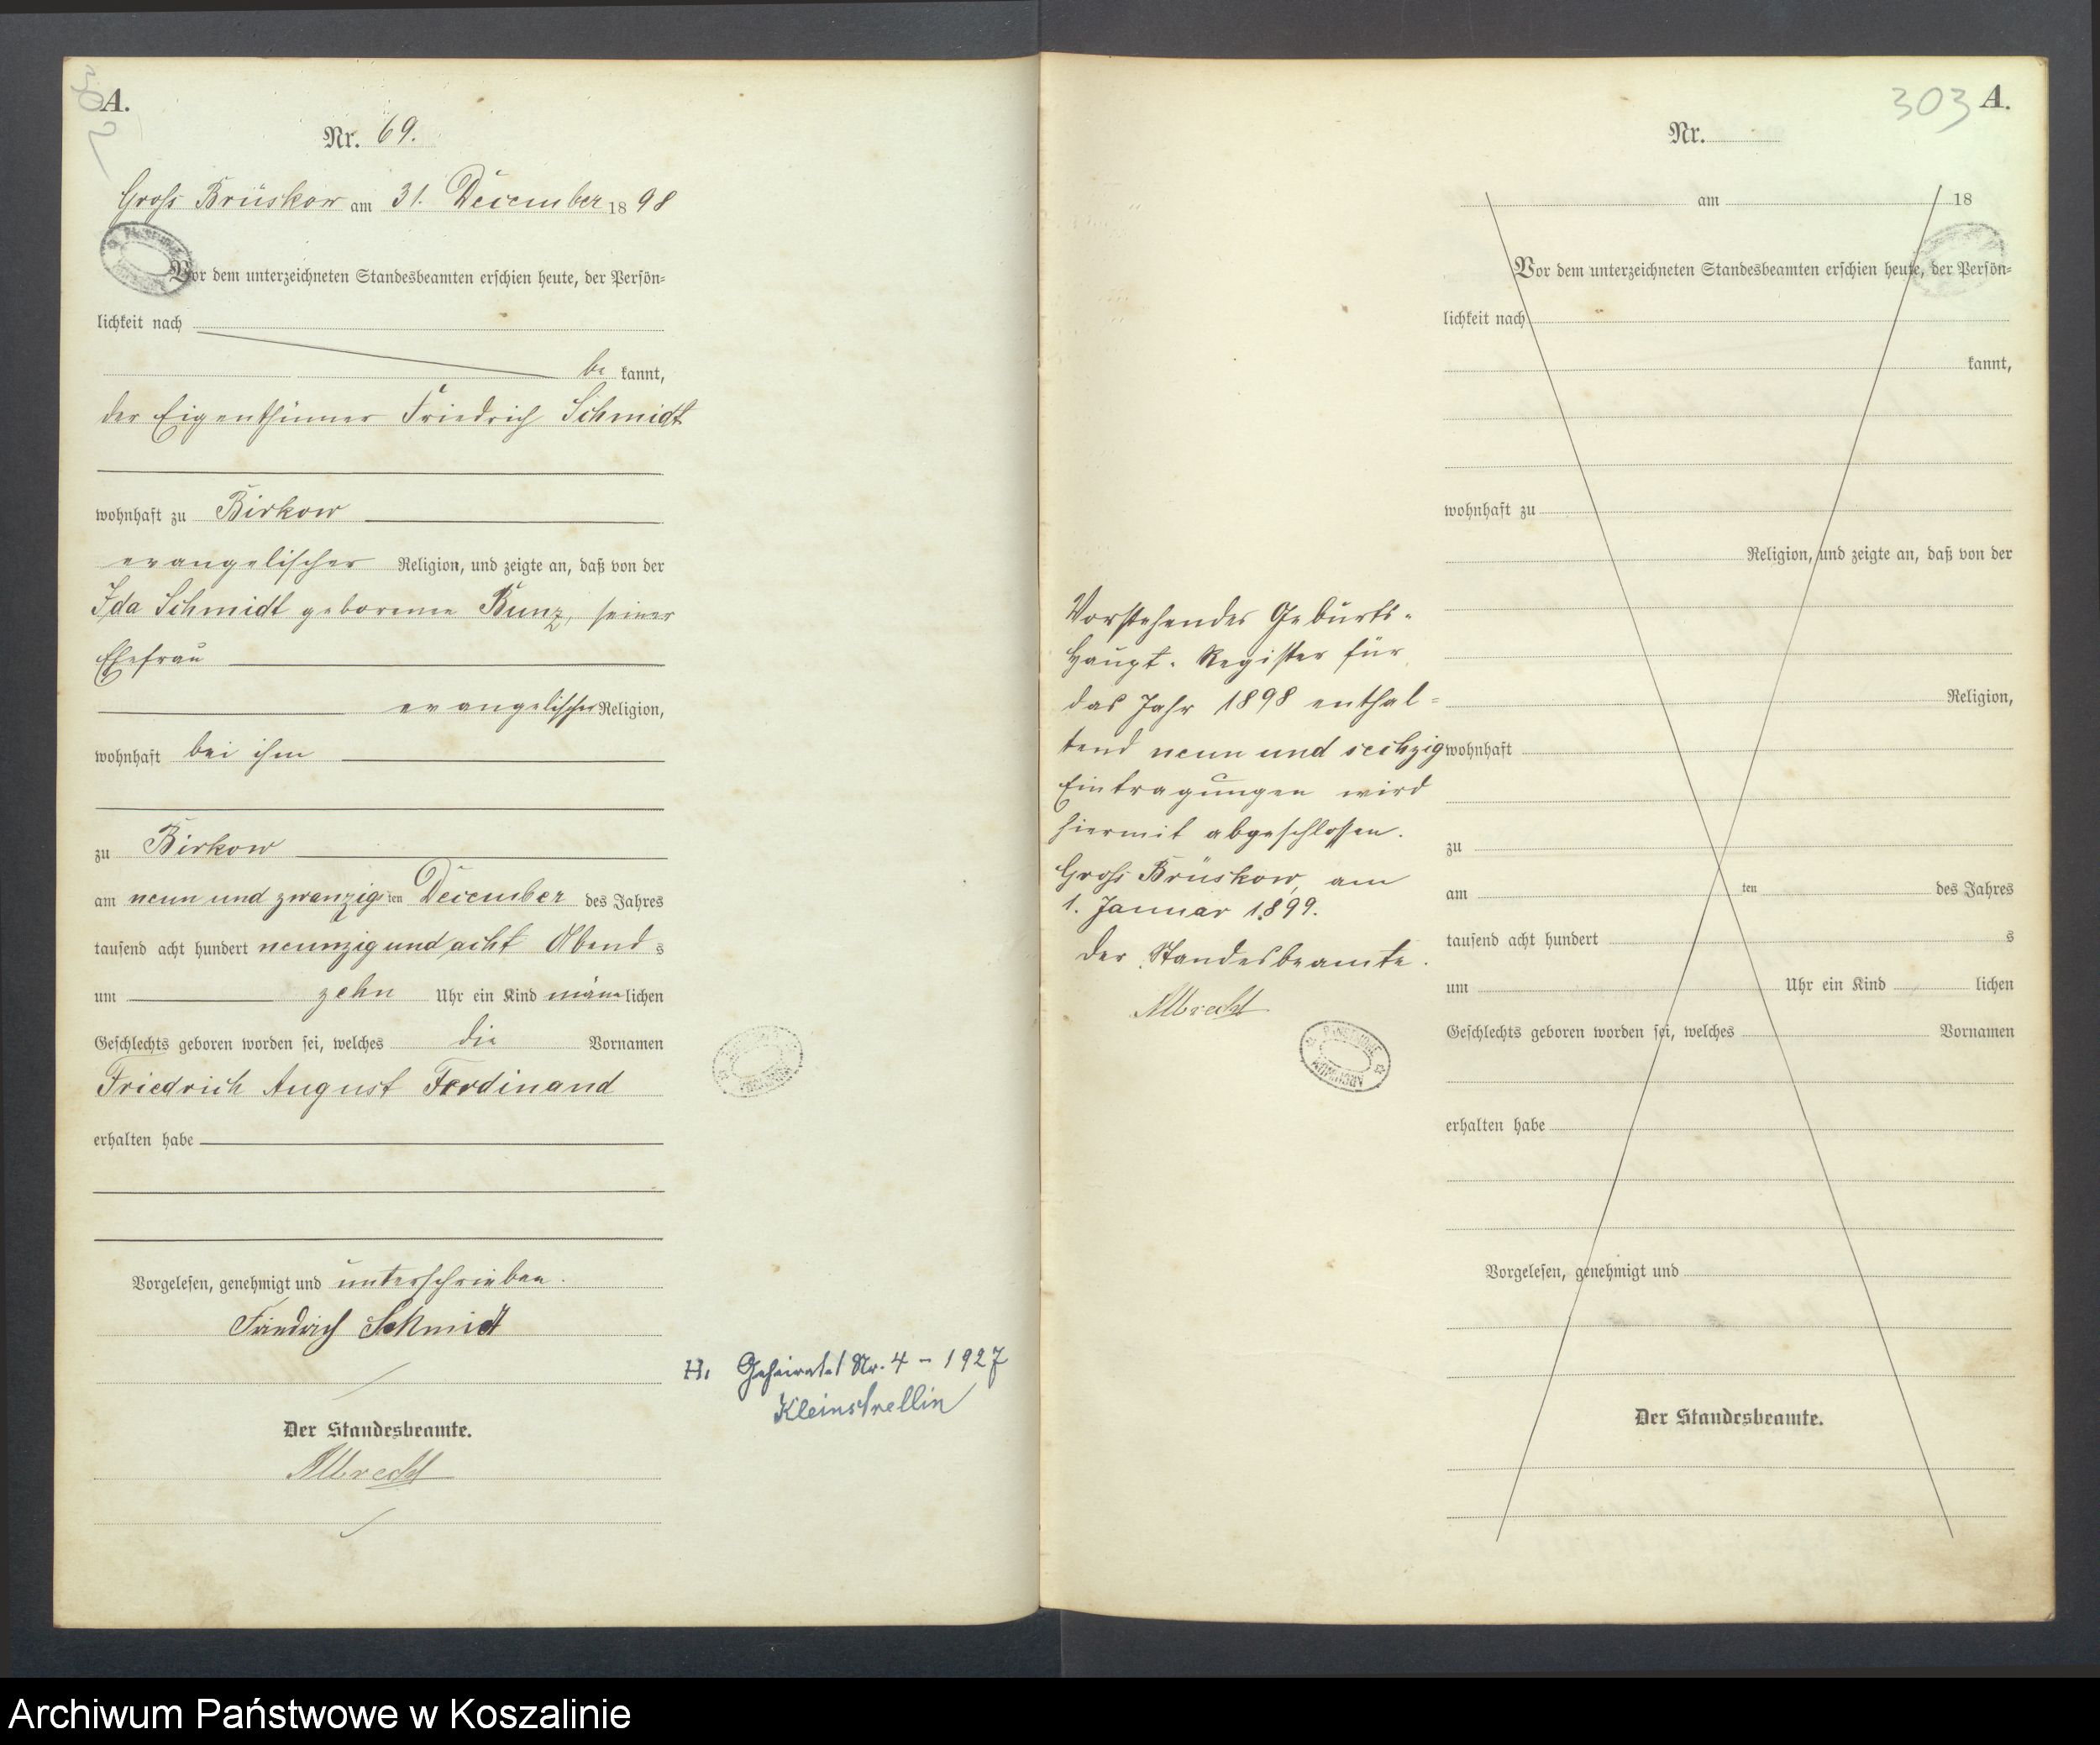 302
A.
Nr. 69.
Groß Brüskow am 31. December 1898
Vor dem unterzeichneten Standesbeamten erschien heute, der Persön=
lichkeit nach
be kannt,
der Eigenthümer Friedrich Schmidt
wohnhaft zu Birkow
evangelischer Religion, und zeigte an, daß von der
Ida Schmidt geborenne Bunz, seiner
Ehefrau
evangelischer Religion,
wohnhaft bei ihm
zu Birkow
am neun und zwanzig ten December des Jahres
tausend acht hundert neunzig und acht Abend s
um zehn Uhr ein Kind männ lichen
Geschlechts geboren worden sei, welches die Vornamen
Friedrich August Ferdinand
erhalten habe
Vorgelesen, genehmigt und unterschrieben.
Friedrich Schmidt
Der Standesbeamte.
Albrecht
H. Geheiratet Nr. 4 - 1927
Kleinstrellin
303 A.
Nr.
am 18
Vor dem unterzeichneten Standesbeamten erschien heute, der Persön=
lichkeit nach
kannt,
wohnhaft zu
Religion, und zeigte an, daß von der
Religion,
wohnhaft
zu
am ten des Jahres
tausend acht hundert s
um Uhr ein Kind lichen
Geschlechts geboren worden sei, welches Vornamen
erhalten habe
Vorgelesen, genehmigt und
Der Standesbeamte.
Vorstehendes Geburts-
Haupt-Register für
das Jahr 1898 enthal=
tend neun und sechzig
Eintragungen wird
hiermit abgeschlossen.
Groß Brüskow, am
1. Januar 1899.
Der Standesbeamte.
Albrecht
Archiwum Państwowe w Koszalinie